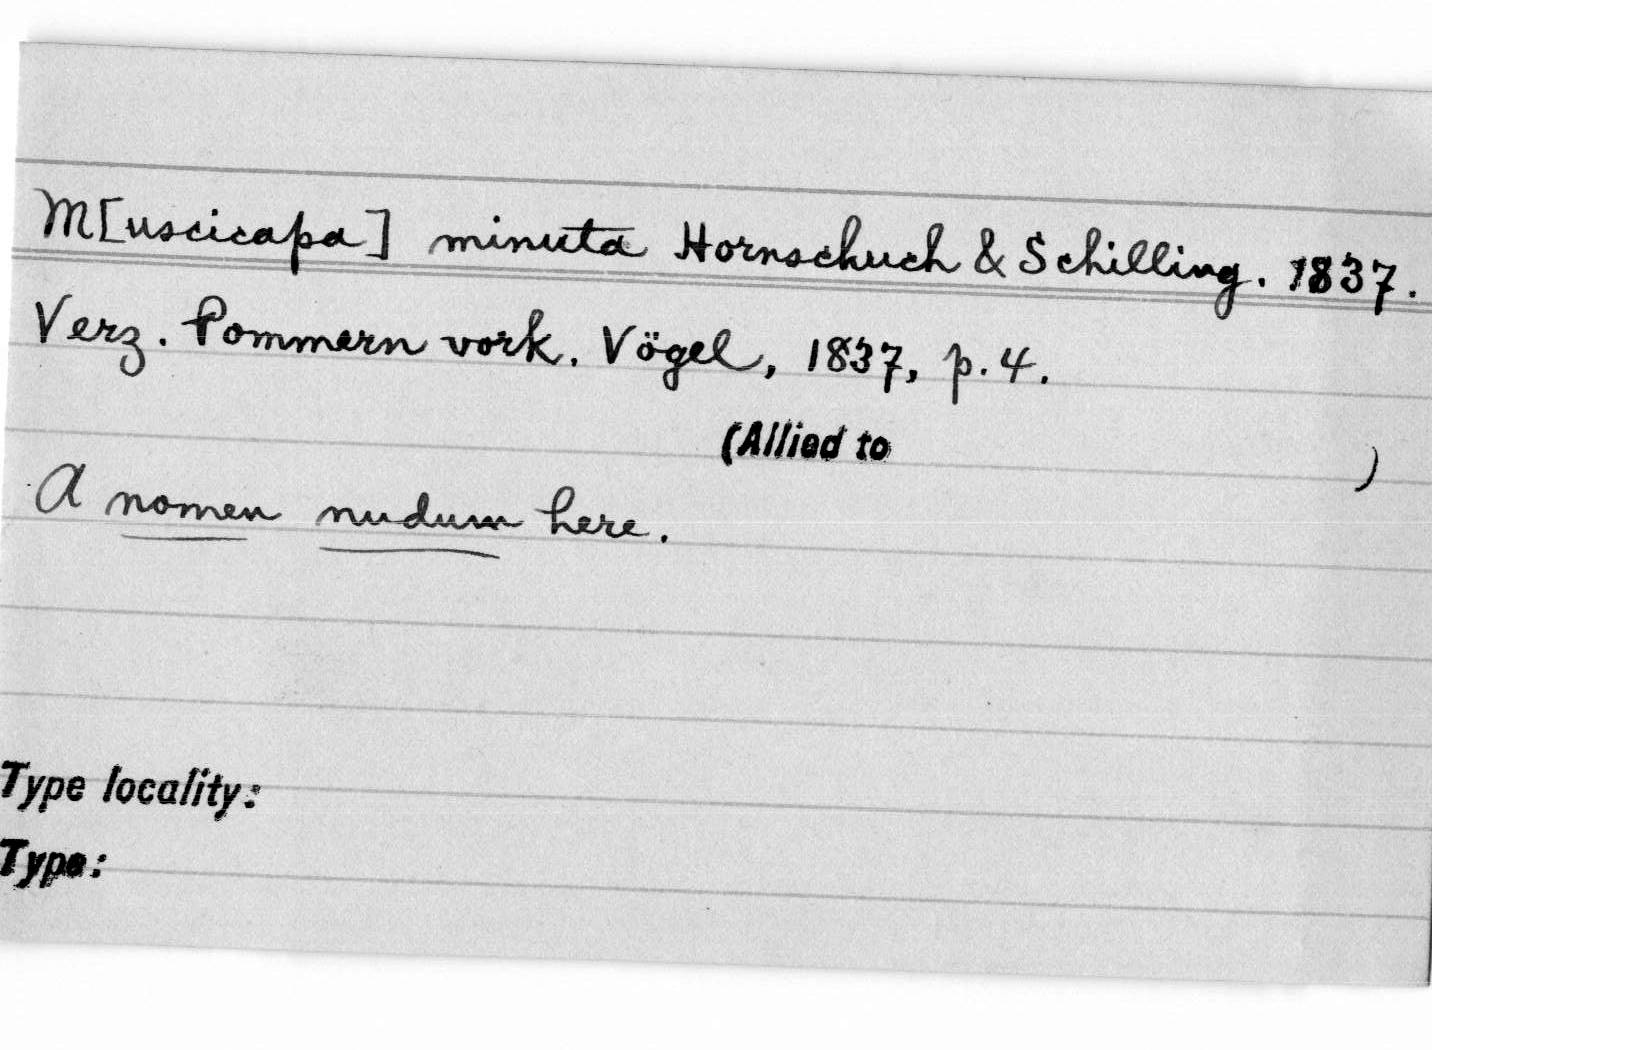 M[uscicapa] minuta Hornschuch & Schilling. 1837.
Verz. Pommern vork. Vögel, 1837, p. 4.
(Allied to )
A nomen nudum here.
Type locality:
Type: